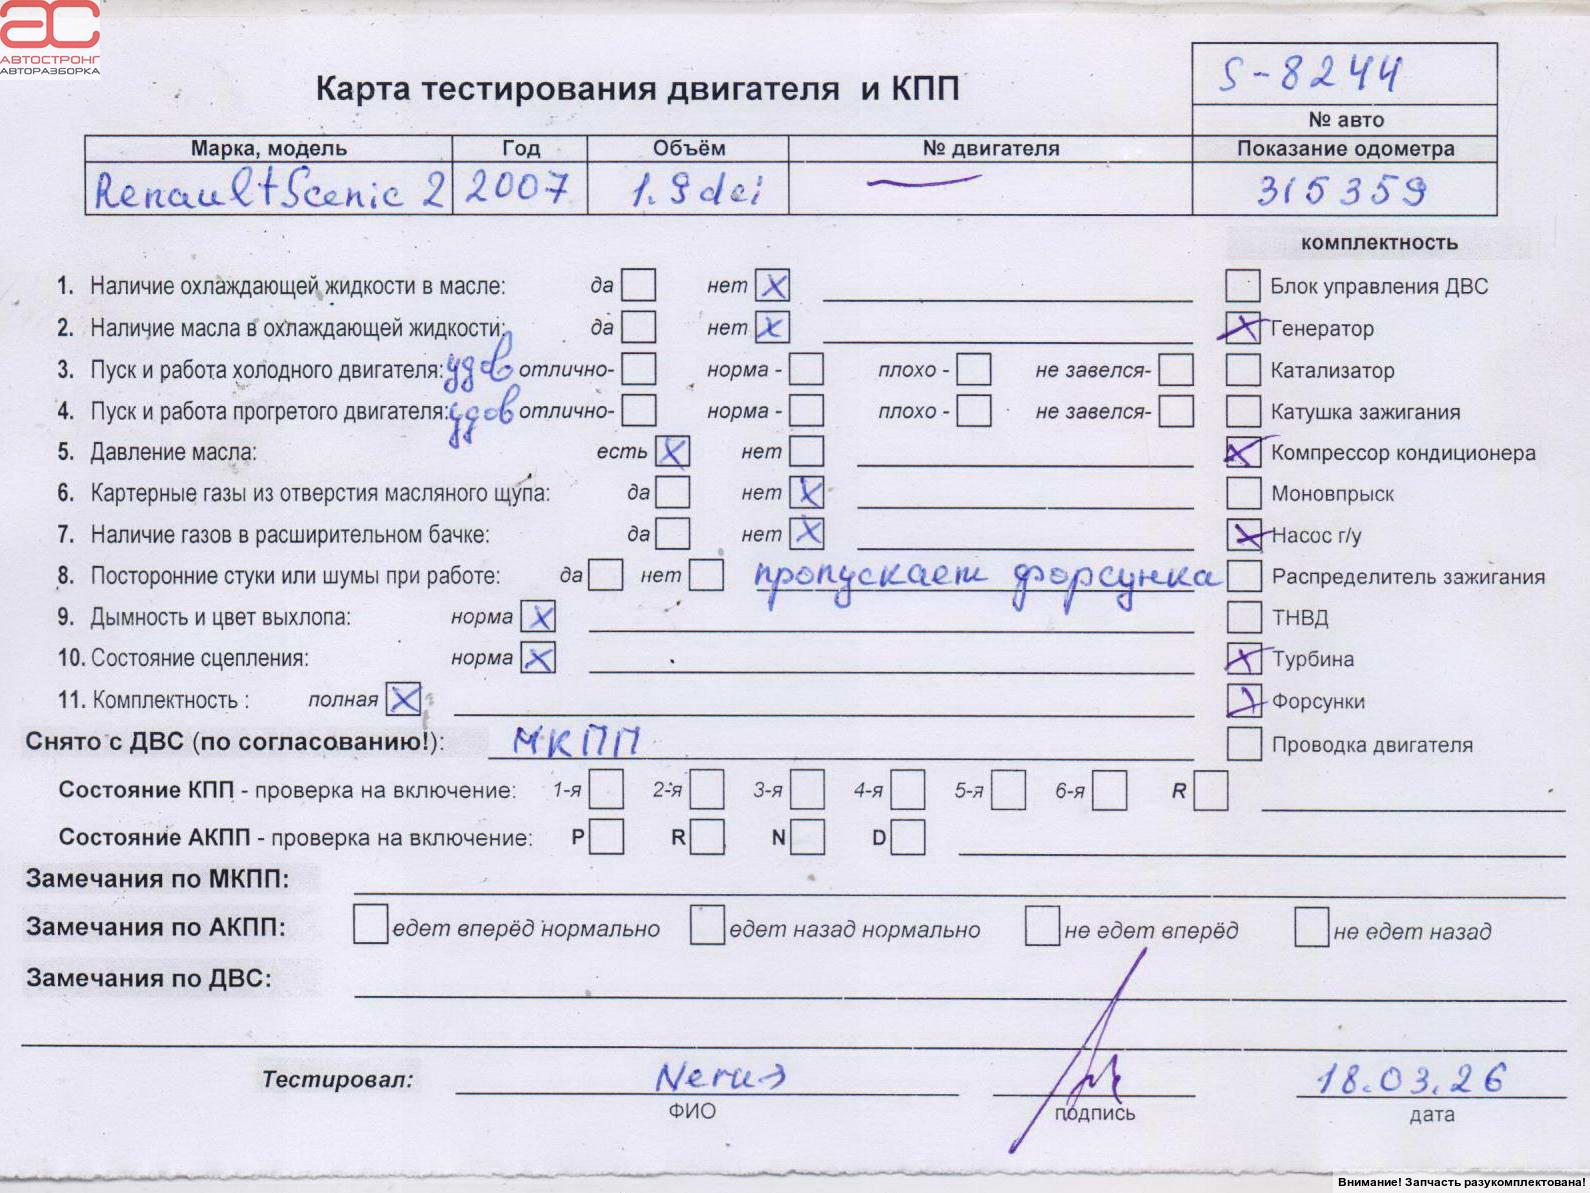 АС
АВТОСТРОНГ
АВТОРАЗБОРКА
S-8244
Карта тестирования двигателя и КПП
№ авто
Марка, модель Год Объём № двигателя Показание одометра
Renault Scenic 2 2007 1.9 dci — 315359
комплектность
1. Наличие охлаждающей жидкости в масле: да нет X Блок управления ДВС
2. Наличие масла в охлаждающей жидкости: да нет X X Генератор
3. Пуск и работа холодного двигателя: удов отлично- норма - плохо - не завелся- Катализатор
4. Пуск и работа прогретого двигателя: удов отлично- норма - плохо - не завелся- Катушка зажигания
5. Давление масла: есть X нет X Компрессор кондиционера
6. Картерные газы из отверстия масляного щупа: да нет X Моновпрыск
7. Наличие газов в расширительном бачке: да нет X X Насос г/у
8. Посторонние стуки или шумы при работе: да нет пропускает форсунка Распределитель зажигания
9. Дымность и цвет выхлопа: норма X ТНВД
10. Состояние сцепления: норма X X Турбина
11. Комплектность : полная X X Форсунки
Снято с ДВС (по согласованию!): МКПП Проводка двигателя
Состояние КПП - проверка на включение: 1-я 2-я 3-я 4-я 5-я 6-я R
Состояние АКПП - проверка на включение: P R N D
Замечания по МКПП:
Замечания по АКПП: едет вперёд нормально едет назад нормально не едет вперёд не едет назад
Замечания по ДВС:
Тестировал: 18.03.26
ФИО подпись дата
Внимание! Запчасть разукомплектована!